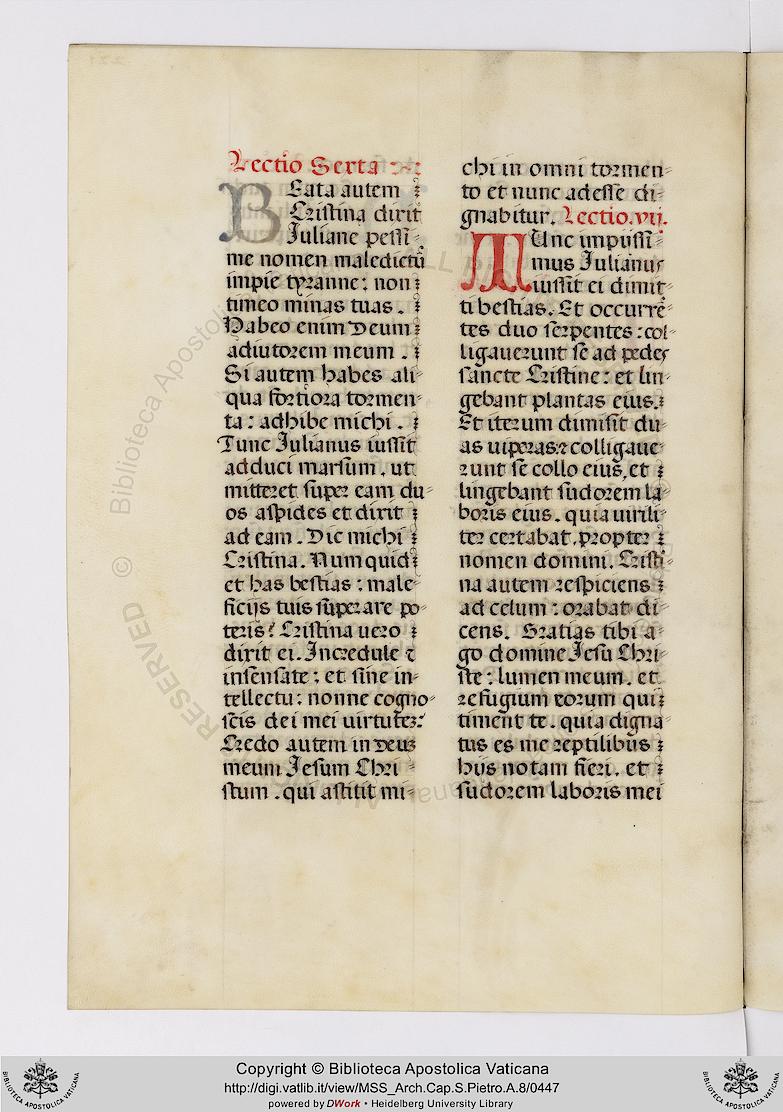 Lectio Sexta
BEata autem
Cristina dixit
Juliane pessi
me nomen maledictũ
impie tyranne: non
timeo minas tuas.
Habeo enim Deum
adiutorem meum.
Si autem habes ali
qua fortiora tormen
ta: adhibe michi.
Tunc Julianus iussit
adduci marsum. ut
mitteret super eam du
os aspides et dixit
ad eam. Dic michi
Cristina. Numquid
et has bestias: male
ficijs tuis superare po
teris? Cristina uero
dixit ei. Incredule ⁊
insensate: et sine in
tellectu: nonne cogno
scis dei mei uirtutez?
Credo autem in deuz
meum Jesum Chri
stum. qui astitit mi
chi in omni tormen
to et nunc adesse di
gnabitur. Lectio.vij.
TUnc impijssi
mus Julianus
iussit ei dimit
ti bestias. Et occurrẽ
tes duo serpentes: col
ligauerunt se ad pedes
sancte Cristine: et lin
gebant plantas eius.
Et iterum dimisit du
as uiperas: ⁊ colligaue
runt se collo eius, et
lingebant sudorem la
boris eius. quia uirili
ter certabat. propter
nomen domini. Cristi
na autem respiciens
ad celum: orabat di
cens. Gratias tibi a
go domine Jesu Chri
ste: lumen meum. et
refugium eorum qui
timent te. quia digna
tus es me reptilibus
hijs notam fieri. et
sudorem laboris mei
RESERVED © Biblioteca Apostolica
Copyright © Biblioteca Apostolica Vaticana
http://digi.vatlib.it/view/MSS_Arch.Cap.S.Pietro.A.8/0447
powered by DWork • Heidelberg University Library
BIBLIOTECA APOSTOLICA VATICANA
BIBLIOTECA APOSTOLICA VATICANA